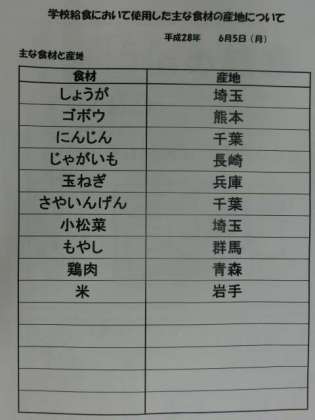 学校給食において使用した主な食材の産地について
平成28年 6月5日（月）
主な食材と産地
食材 産地
しょうが 埼玉
ゴボウ 熊本
にんじん 千葉
じゃがいも 長崎
玉ねぎ 兵庫
さやいんげん 千葉
小松菜 埼玉
もやし 群馬
鶏肉 青森
米 岩手